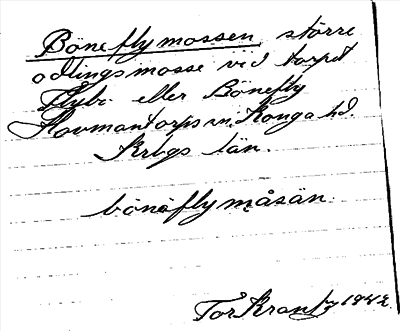 Böneflymossen, större
odlingsmosse vid torpet
Flybo eller Bönefly
Hovmantorps sn, Konga hd.
Krbgs län.
bönəflymåsän.
Tor Krantz 1942.